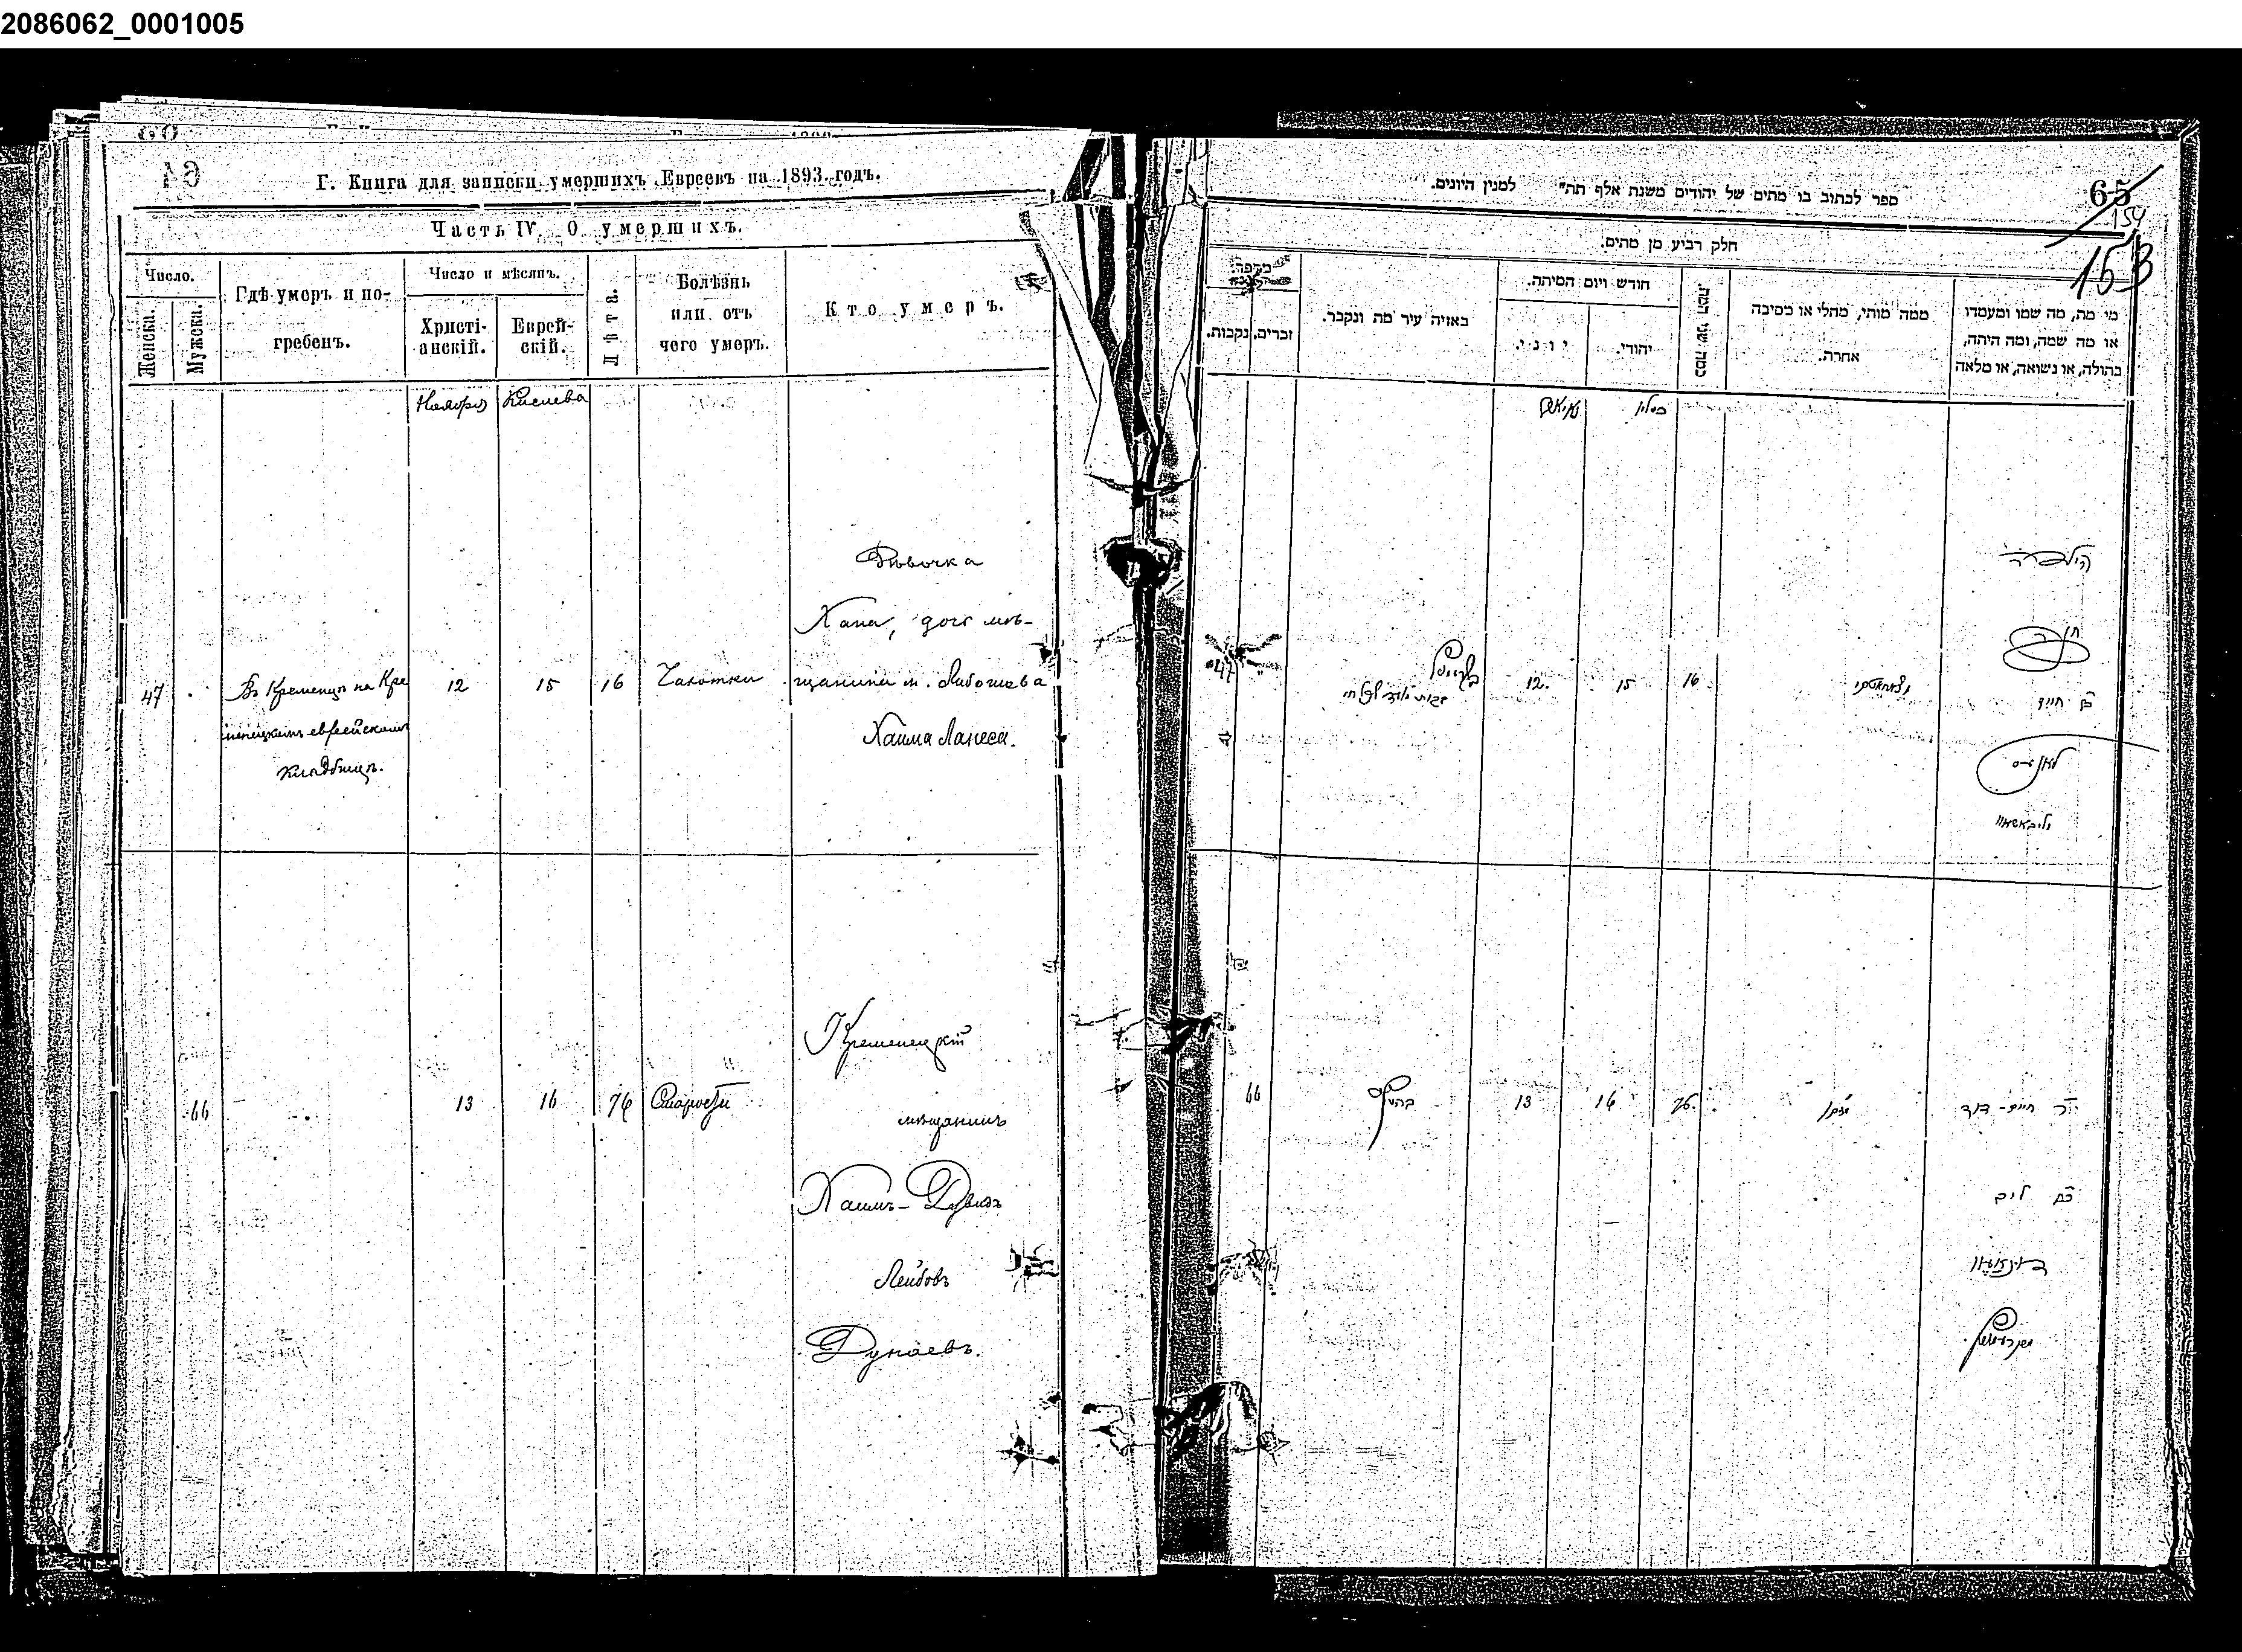 2086062_0001005
Г. Книга для записки умершихъ Евреевъ на 1893 годъ.
Часть IV. О умершихъ.
Число.
Женска.
Мужска.
Гдѣ умеръ и по-
гребенъ.
Число и мѣсяцъ.
Христі-
анскій.
Еврей-
скій.
Лѣта.
Болѣзнь
или отъ
чего умеръ.
Кто умеръ.
Ноября
Кислева
47
Въ Кременцѣ на Кре
менецкомъ еврейскомъ
кладбищѣ.
12
15
16
Чахотки
Дѣвочка
Хана, дочь мѣ-
щанина м. Либошева
Хаима Ланеса.
66
13
16
76
Старости
Кременецкій
мѣщанинъ
Хаимъ-Дувидъ
Лейбовъ
Дунаевъ.
65
154
153
ספר לכתוב בו מתים של יהודים משנת אלף תת״ למנין היונים.
חלק רביע מן מתים.
מספר
זכרים.
נקבות.
באזיה עיר מת ונקבר.
חודש ויום המיתה.
יוני.
יהודי.
כמה שני המת.
ממה מותי, מחלי או מסיבה
אחרת.
מי מת, מה שמו ומעמדו
או מה שמה, ומה היתה,
בתולה, או נשואה, או מלאה
כסלו
47
12.
15
16
הילדה
חנה
חיים
לאנעס
66
13
16
76.
ר׳ חיים-דוד
ליב